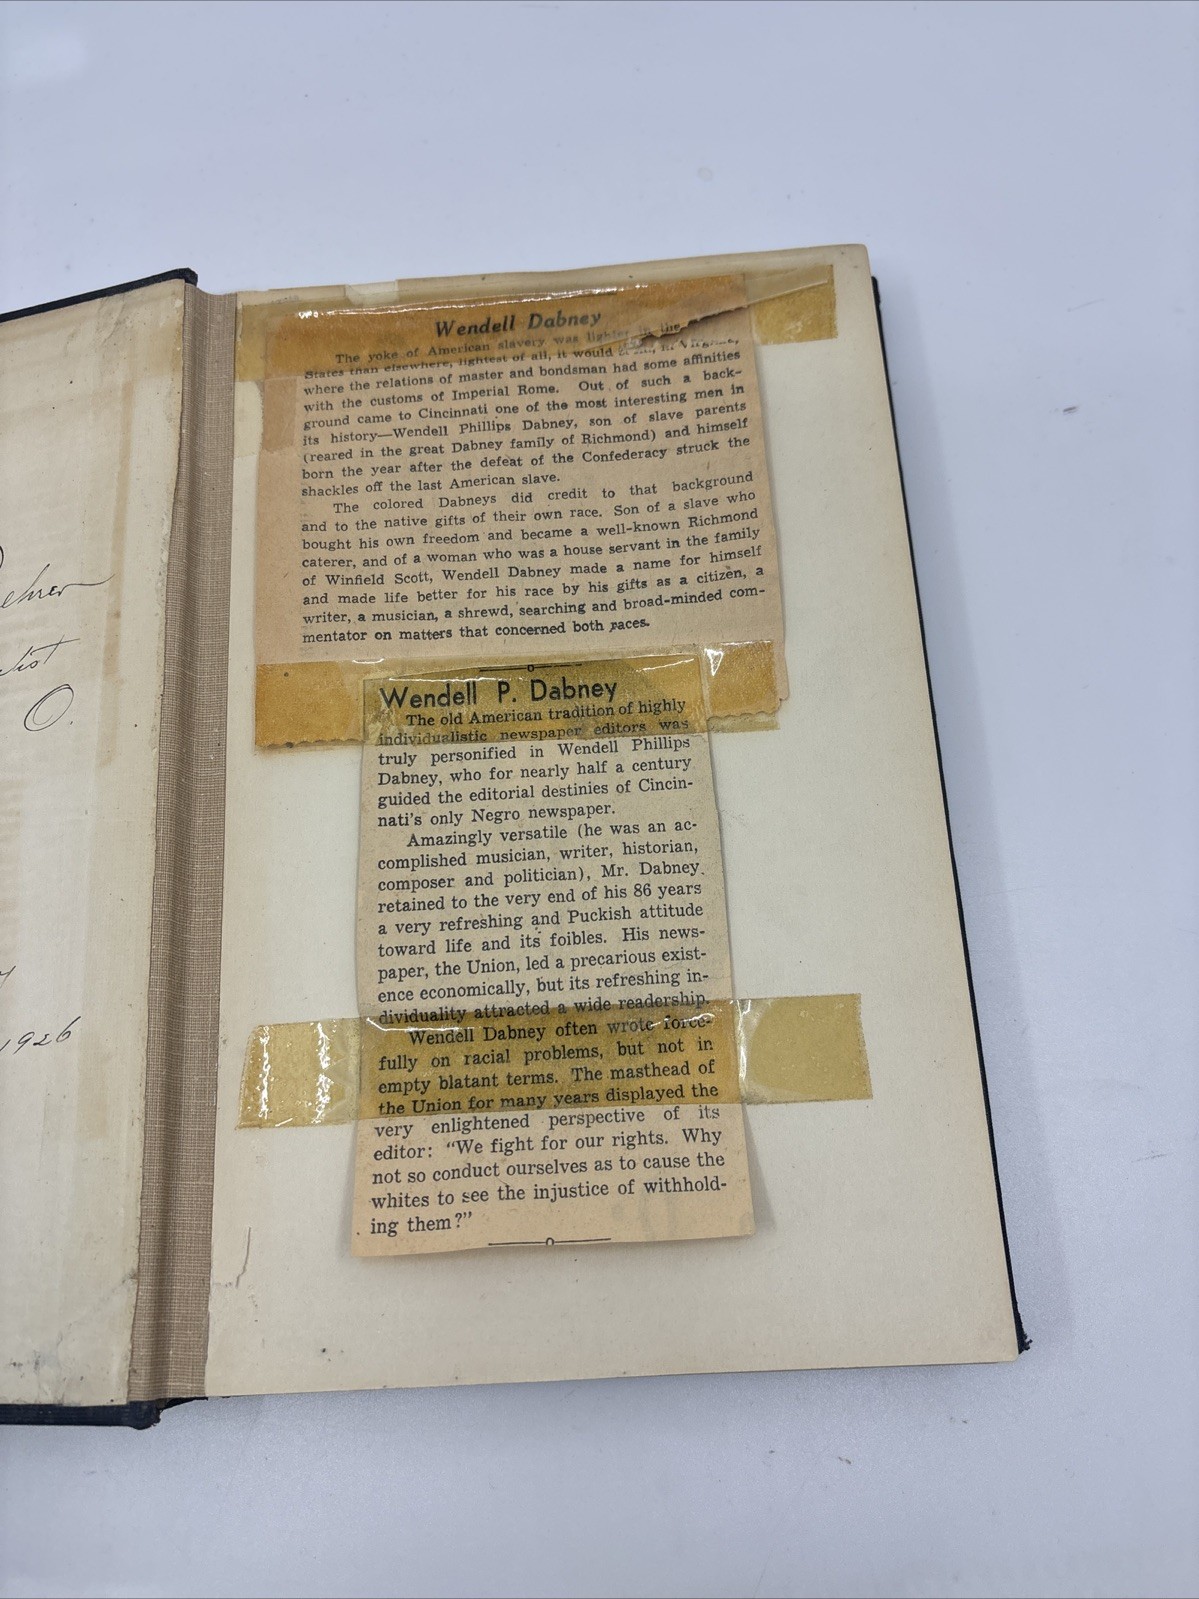 ehrer
O.
1926
Wendell Dabney
The yoke of American slavery was lighter in the
States than elsewhere, lightest of all, it would
where the relations of master and bondsman had some affinities
with the customs of Imperial Rome. Out of such a back-
ground came to Cincinnati one of the most interesting men in
its history—Wendell Phillips Dabney, son of slave parents
(reared in the great Dabney family of Richmond) and himself
born the year after the defeat of the Confederacy struck the
shackles off the last American slave.
The colored Dabneys did credit to that background
and to the native gifts of their own race. Son of a slave who
bought his own freedom and became a well-known Richmond
caterer, and of a woman who was a house servant in the family
of Winfield Scott, Wendell Dabney made a name for himself
and made life better for his race by his gifts as a citizen, a
writer, a musician, a shrewd, searching and broad-minded com-
mentator on matters that concerned both races.
Wendell P. Dabney
The old American tradition of highly
individualistic newspaper editors was
truly personified in Wendell Phillips
Dabney, who for nearly half a century
guided the editorial destinies of Cincin-
nati's only Negro newspaper.
Amazingly versatile (he was an ac-
complished musician, writer, historian,
composer and politician), Mr. Dabney
retained to the very end of his 86 years
a very refreshing and Puckish attitude
toward life and its foibles. His news-
paper, the Union, led a precarious exist-
ence economically, but its refreshing in-
dividuality attracted a wide readership.
Wendell Dabney often wrote force-
fully on racial problems, but not in
empty blatant terms. The masthead of
the Union for many years displayed the
very enlightened perspective of its
editor: "We fight for our rights. Why
not so conduct ourselves as to cause the
whites to see the injustice of withhold-
ing them?"